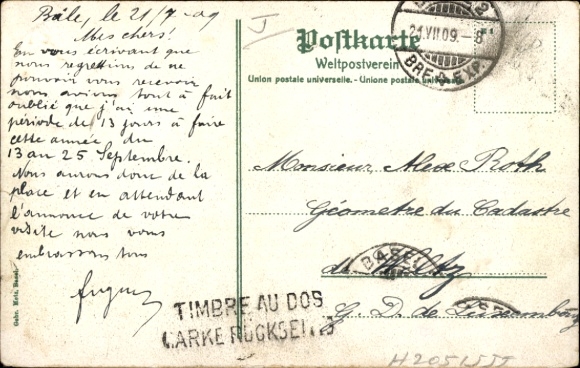 Bâle, le 21/7-09
Mes chers!
En vous écrivant que
nous regrettions de ne
pouvoir vous recevoir
nous avions tout à fait
oublié que j'ai une
période de 13 jours à faire
cette année du
13 au 25 Septembre.
Nous aurons donc de la
place et en attendant
l'annonce de votre
visite nous vous
embrassons tous
Gebr. Metz, Basel.
Postkarte
Weltpostverein
Union postale universelle. - Unione postale universale
21.VII.09.-8
BRF. EXP.
Monsieur Alex Roth
Géomètre du Cadastre
à Wiltz
G. D. de Luxembourg
BASEL
TIMBRE AU DOS
MARKE RÜCKSEITIG
H205155J